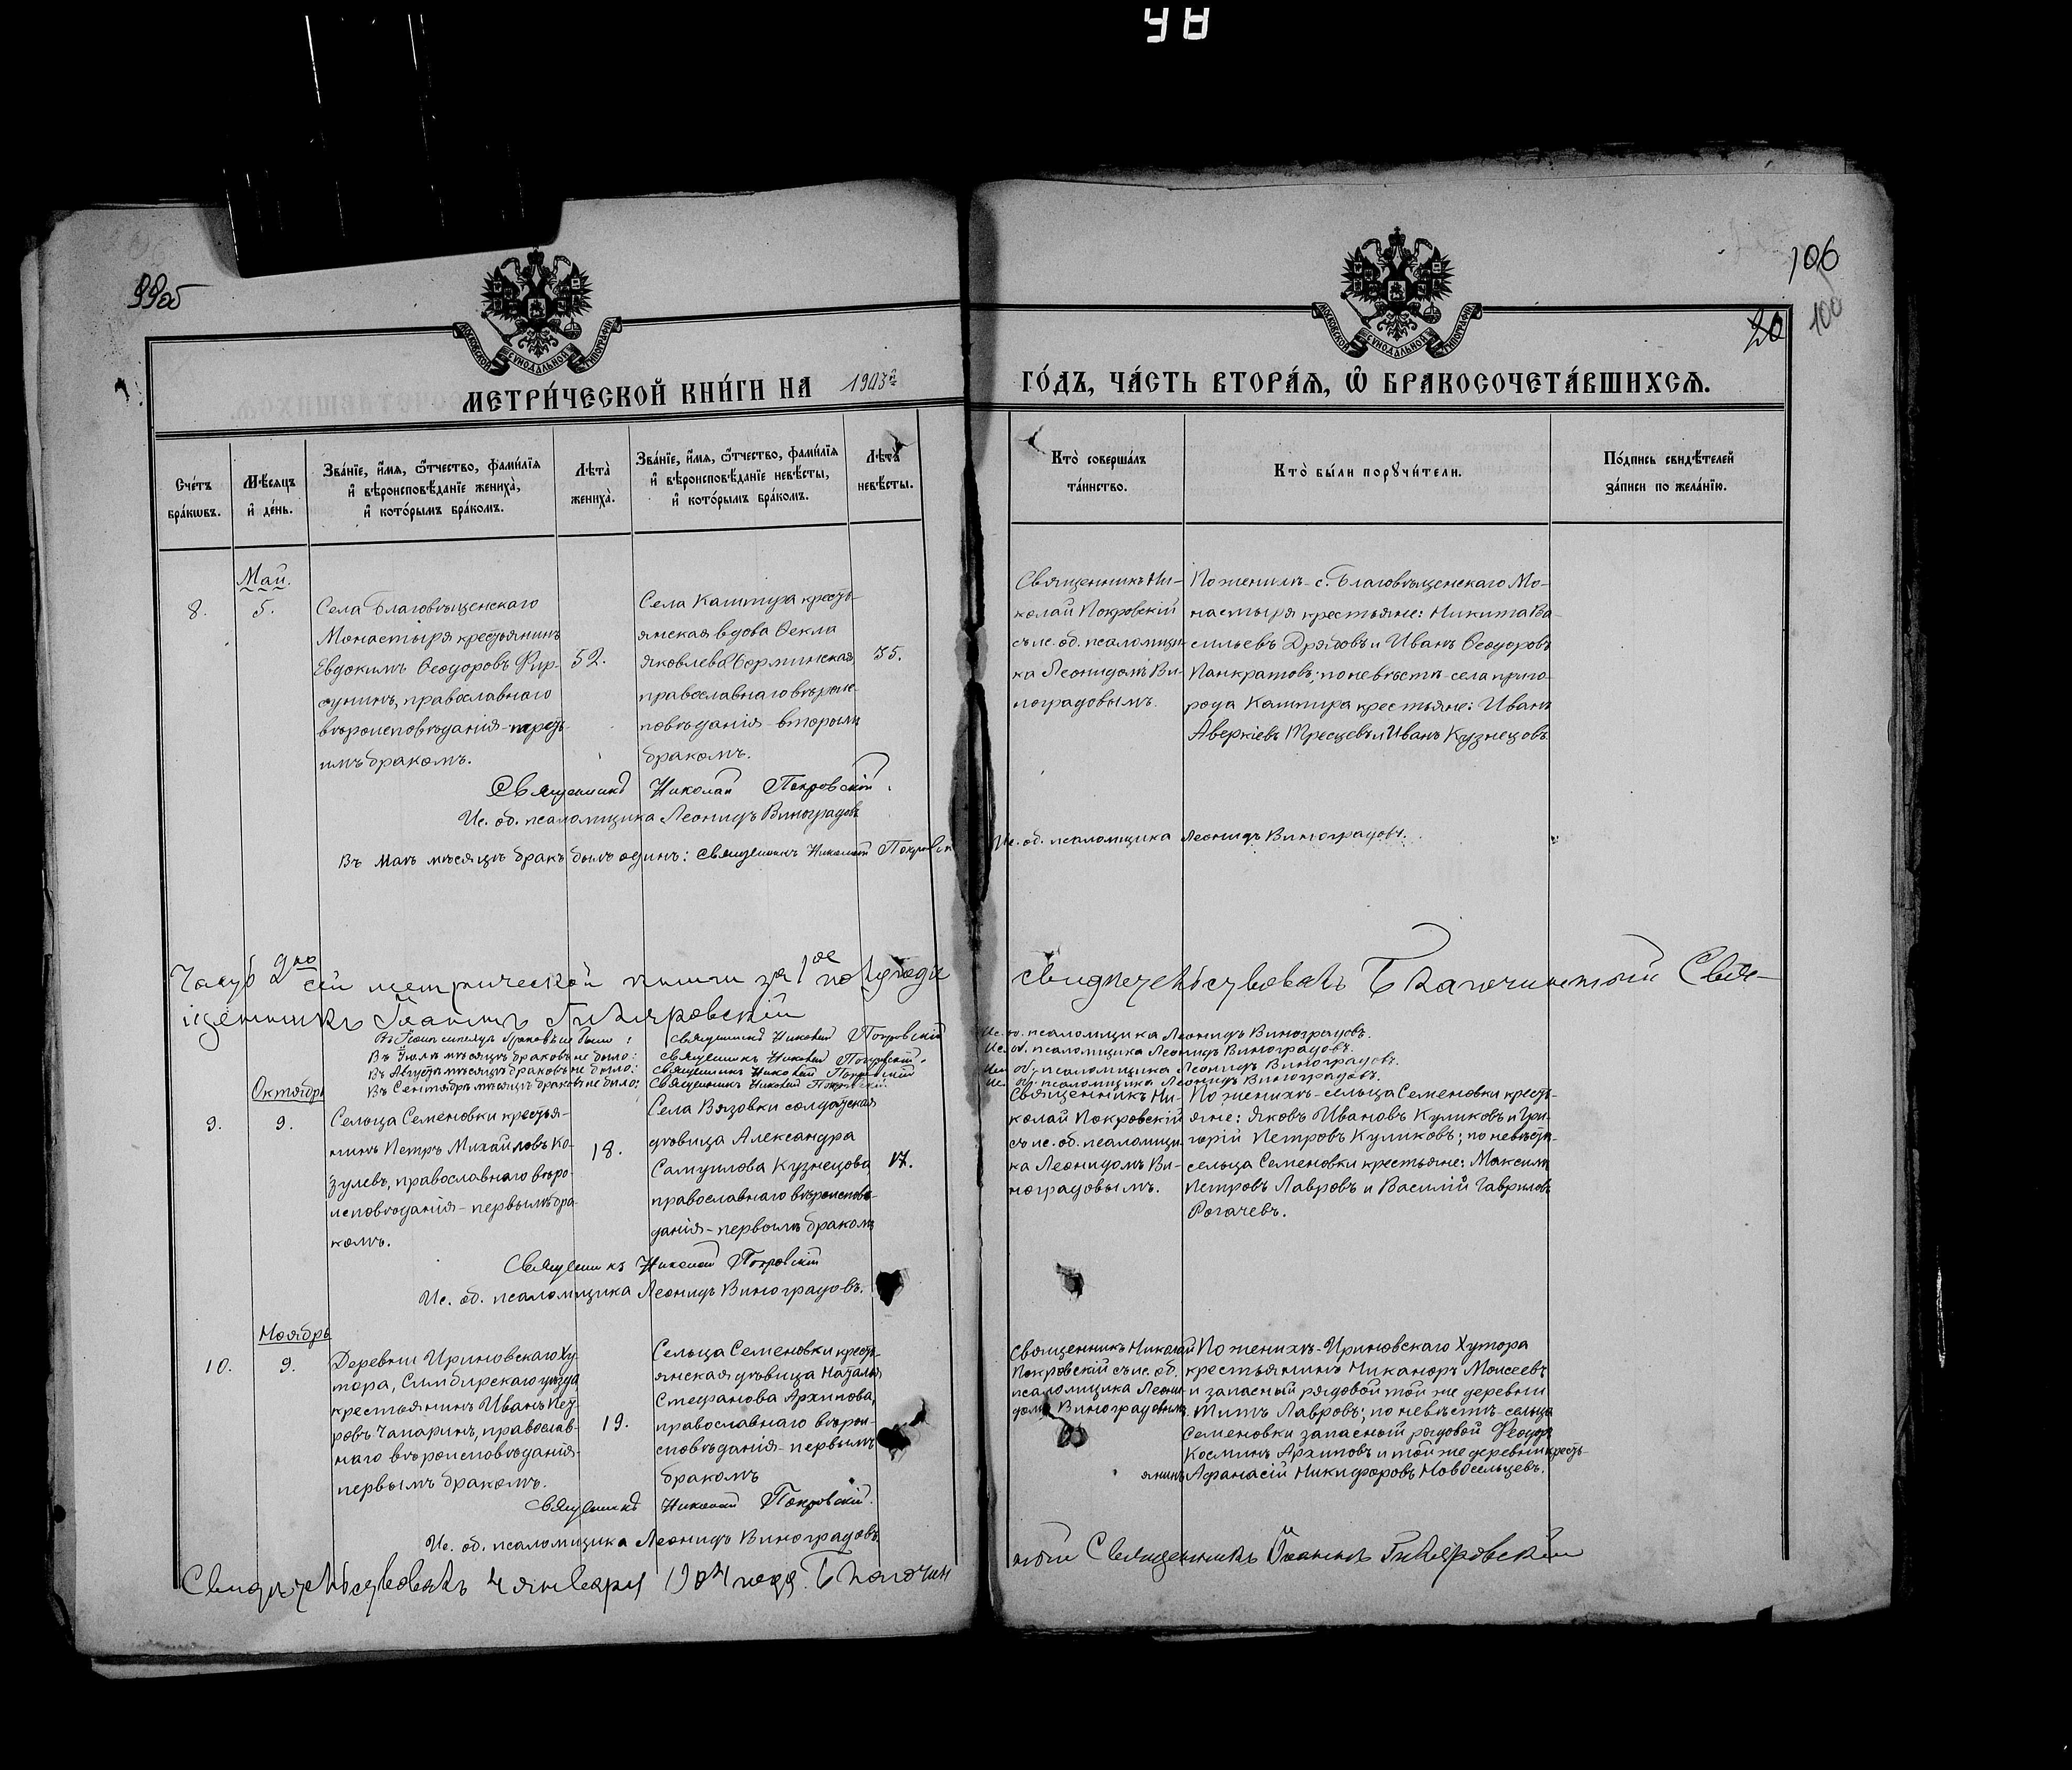 98
99об
106
100
20
МОСКОВСКОЙ СѴНОДАЛЬНОЙ ТИПОГРАФІИ
МОСКОВСКОЙ СѴНОДАЛЬНОЙ ТИПОГРАФІИ
МЕТРИ́ЧЕСКОЙ КНИ́ГИ НА 1903й
ГО́ДЪ, ЧА́СТЬ ВТОРА́Ѧ, Ѽ БРАКОСОЧЕТА́ВШИХСѦ.
Сче́тъ бра́кѡвъ.
Мѣ́сѧцъ и҆ де́нь.
Зва́нїе, и҆́мѧ, ѻ҆́тчество, фамѝлїѧ и҆ вѣроисповѣ́данїе жениха̀, и҆ кото́рымъ бра́комъ.
Лѣта̀ жениха̀.
Зва́нїе, и҆́мѧ, ѻ҆́тчество, фамѝлїѧ и҆ вѣроисповѣ́данїе невѣ́сты, и҆ кото́рымъ бра́комъ.
Лѣта̀ невѣ́сты.
Кто̀ соверша́лъ та́инство.
Кто̀ бы́ли порꙋчи́тели.
По́дпись свидѣ́телей за́писи по жела́нїю.
Май.
8.
5.
Села Благовѣщенскаго
Монастыря крестьянинъ
Евдокимъ Ѳеодоровъ Фир-
сунинъ, православнаго
вѣроисповѣданія - треть-
имъ бракомъ.
52.
Села Каштира кресть-
янская вдова Ѳекла
Яковлева Борминская,
православнаго вѣроис-
повѣданія - вторымъ
бракомъ.
35.
Священникъ Ни-
колай Покровскій
съ ис. об. псаломщи-
ка Леонидомъ Ви-
ноградовымъ.
По женихѣ - с. Благовѣщенскаго Мо-
настыря крестьяне: Никита Ва-
сильевъ Дрябовъ и Иванъ Ѳеодоровъ
Панкратовъ; по невѣстѣ - села приго-
рода Каштира крестьяне: Иванъ
Аверкіевъ Тресцевъ и Иванъ Кузнецовъ.
Священникъ Николай Покровскій.
Ис. об. псаломщика Леонидъ Виноградовъ
Въ Маѣ мѣсяцѣ бракъ былъ одинъ: Священникъ Николай Покровскій
Ис. об. псаломщика Леонидъ Виноградовъ.
Часть 2ю сей метрической книги за 1ое полугодіе свидѣтельствовалъ Благочинный Свя-
щенникъ Іоаннъ Гиляровскій
Въ Іюнѣ мѣсяцѣ браковъ не было: Священникъ Николай Покровскій
Ис. об. псаломщика Леонидъ Виноградовъ.
Въ Іюлѣ мѣсяцѣ браковъ не было: Священникъ Николай Покровскій.
Ис. об. псаломщика Леонидъ Виноградовъ.
Въ Августѣ мѣсяцѣ браковъ не было: Священникъ Николай Покровскій
Ис. об. псаломщика Леонидъ Виноградовъ.
Въ Сентябрѣ мѣсяцѣ браковъ не было: Священникъ Николай Покровскій
Ис. об. псаломщика Леонидъ Виноградовъ.
Октябрь
9.
9.
Сельца Семеновки крестья-
нинъ Петръ Михайловъ Ко-
зулевъ, православнаго вѣро-
исповѣданія - первымъ бра-
комъ.
18.
Села Вязовки солдатская
дѣвица Александра
Самуилова Кузнецова,
православнаго вѣроисповѣ-
данія - первымъ бракомъ
17.
Священникъ Ни-
колай Покровскій
съ ис. об. псаломщи-
ка Леонидомъ Ви-
ноградовымъ.
По женихѣ - сельца Семеновки кресть-
яне: Яковъ Ивановъ Куликовъ и Гри-
горій Петровъ Куликовъ; по невѣстѣ -
сельца Семеновки крестьяне: Максимъ
Петровъ Лавровъ и Василій Гавриловъ
Рогачевъ.
Священникъ Николай Покровскій
Ис. об. псаломщика Леонидъ Виноградовъ.
Ноябрь
10.
9.
Деревни Ириновскаго Ху-
тора, Симбирскаго уѣзда
крестьянинъ Иванъ Пет-
ровъ Чапаринъ, православ-
наго вѣроисповѣданія -
первымъ бракомъ.
19.
Сельца Семеновки кресть-
янская дѣвица Наталья
Стефанова Архипова,
православнаго вѣрои-
сповѣданія - первымъ
бракомъ
Священникъ Николай
Покровскій съ ис. об.
псаломщика Леони-
домъ Виноградовымъ.
По женихѣ - Ириновскаго Хутора
крестьянинъ Никаноръ Моисеевъ
и запасный рядовой той же деревни
Титъ Лавровъ; по невѣстѣ - сельца
Семеновки запасный рядовой Ѳеодоръ
Косминъ Архиповъ и той же деревни кресть-
янинъ Афанасій Никифоровъ Новосельцевъ.
Священникъ Николай Покровскій.
Ис. об. псаломщика Леонидъ Виноградовъ.
Свидѣтельствовалъ 4 января 1904 года. Благочин-
ный Священникъ Іоаннъ Гиляровскій